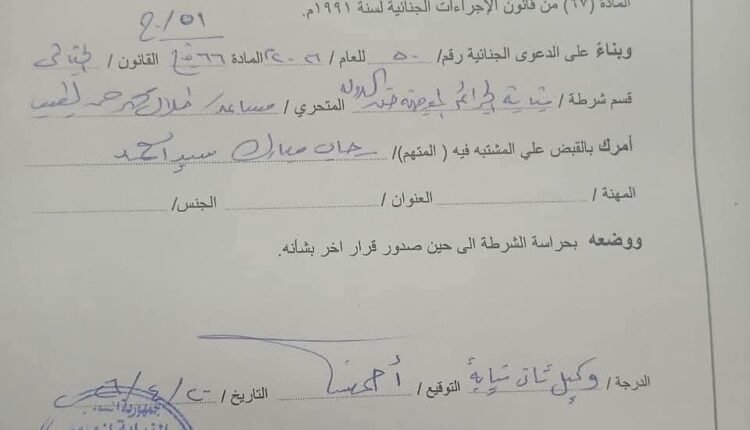 المادة (٦٧) من قانون الإجراءات الجنائية لسنة ١٩٩١م.
٥١/ح
وبناءً على الدعوى الجنائية رقم/ ٥٠ للعام / ٢٠٢٦ المادة ٦٦ القانون / الجنائي
قسم شرطة / نيابة الجرائم الموجهة ضد الدولة المتحري / مساعد/ طلال
أمرك بالقبض علي المشتبه فيه ( المتهم)/ رحاب مبارك سيد أحمد
المهنة / العنوان / الجنس/
ووضعه بحراسة الشرطة الى حين صدور قرار اخر بشانه.
الدرجة / وكيل ثاني نيابة التوقيع / التاريخ /
جمهورية